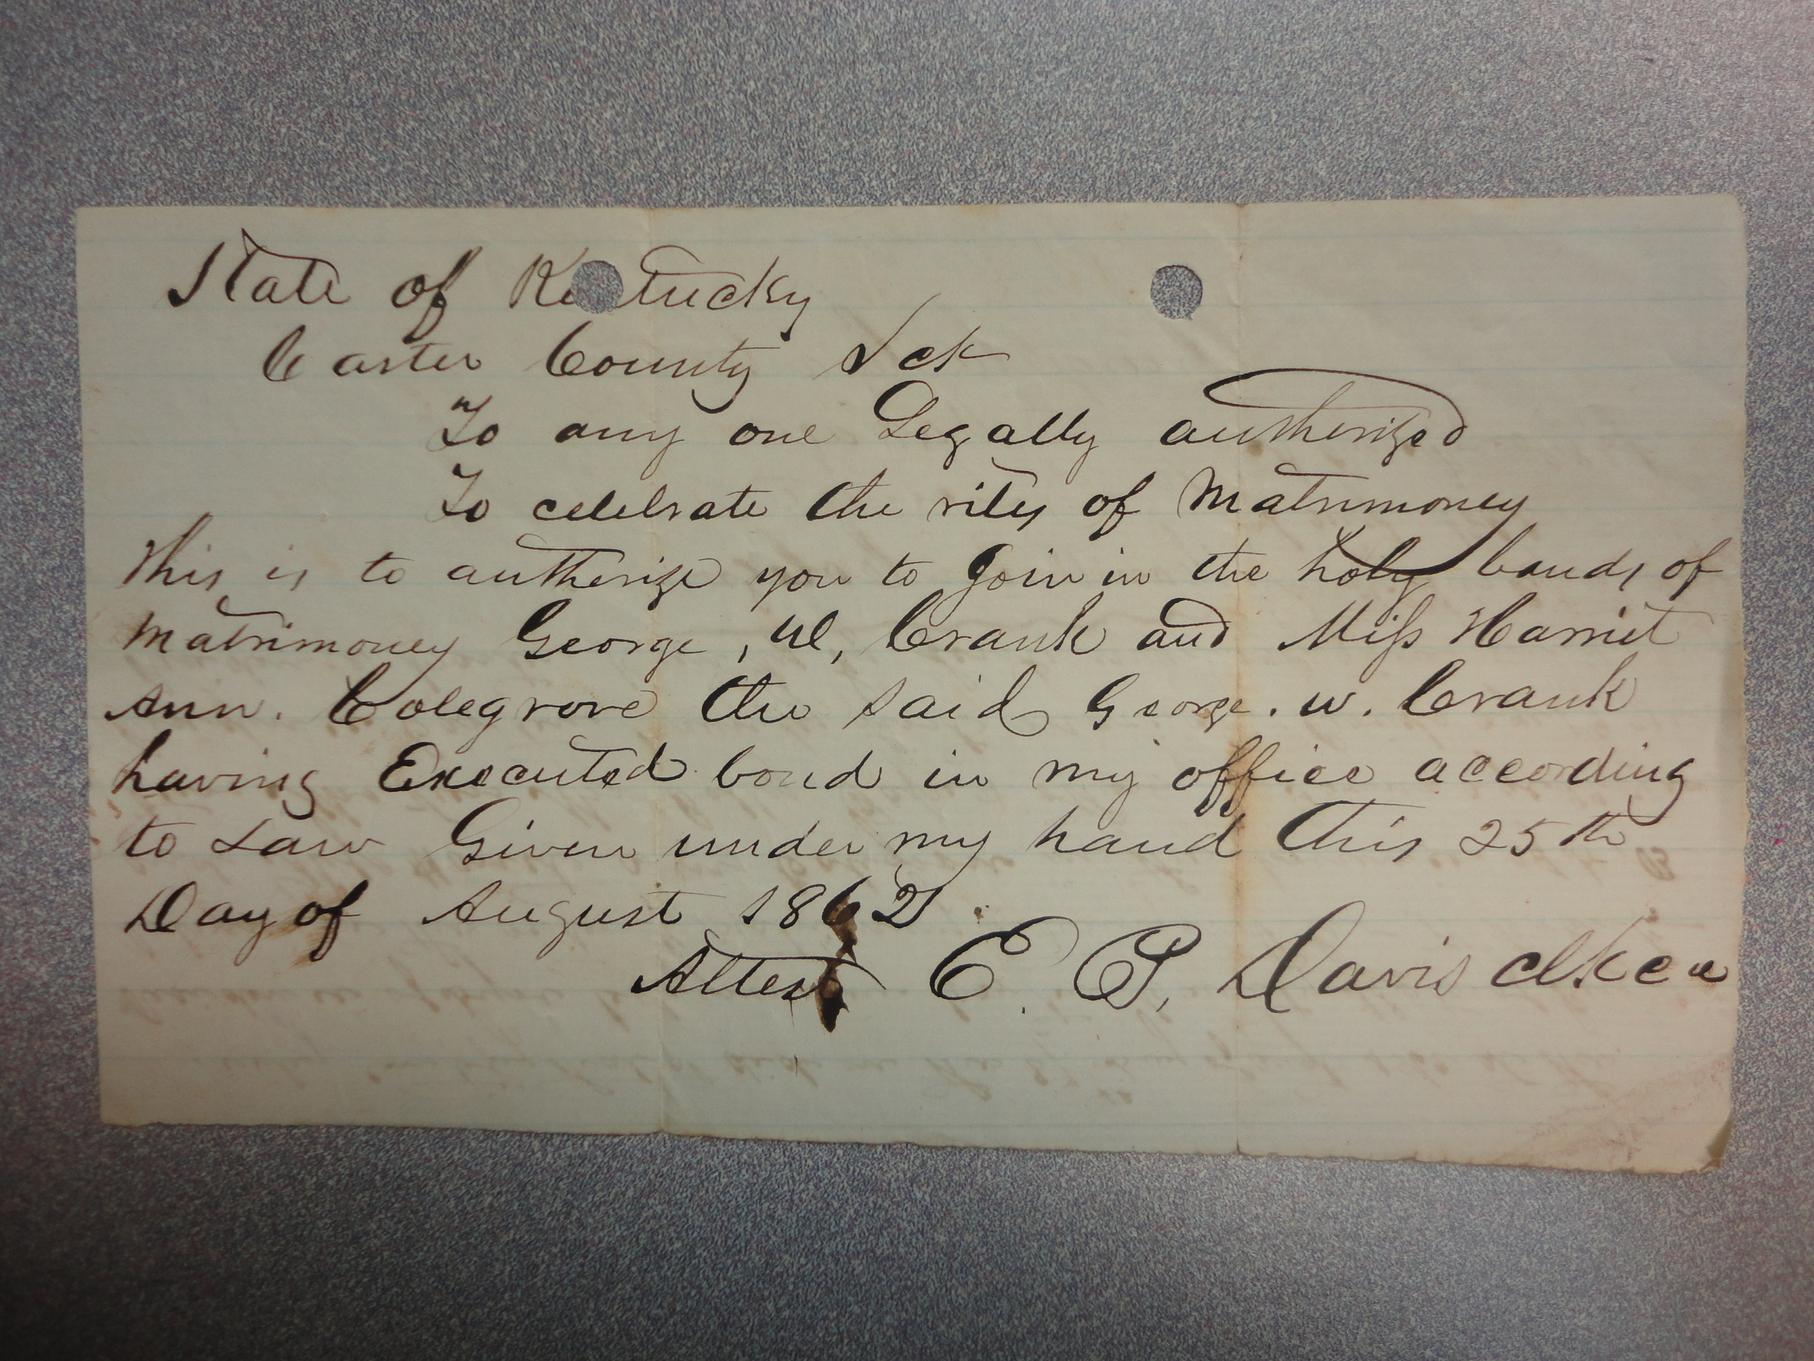 State of Kentucky
Carter County Sct
To any one Legally authorized
To celebrate the rites of Matrimoney
This is to authorize you to Join in the holy bands of
Matrimoney George, W, Crank and Miss Harriet
Ann. Colegrove the said George. W. Crank
having Executed bond in my office according
to Law Given under my hand this 25th
Day of August 1862
Attest E. P. Davis clk cc